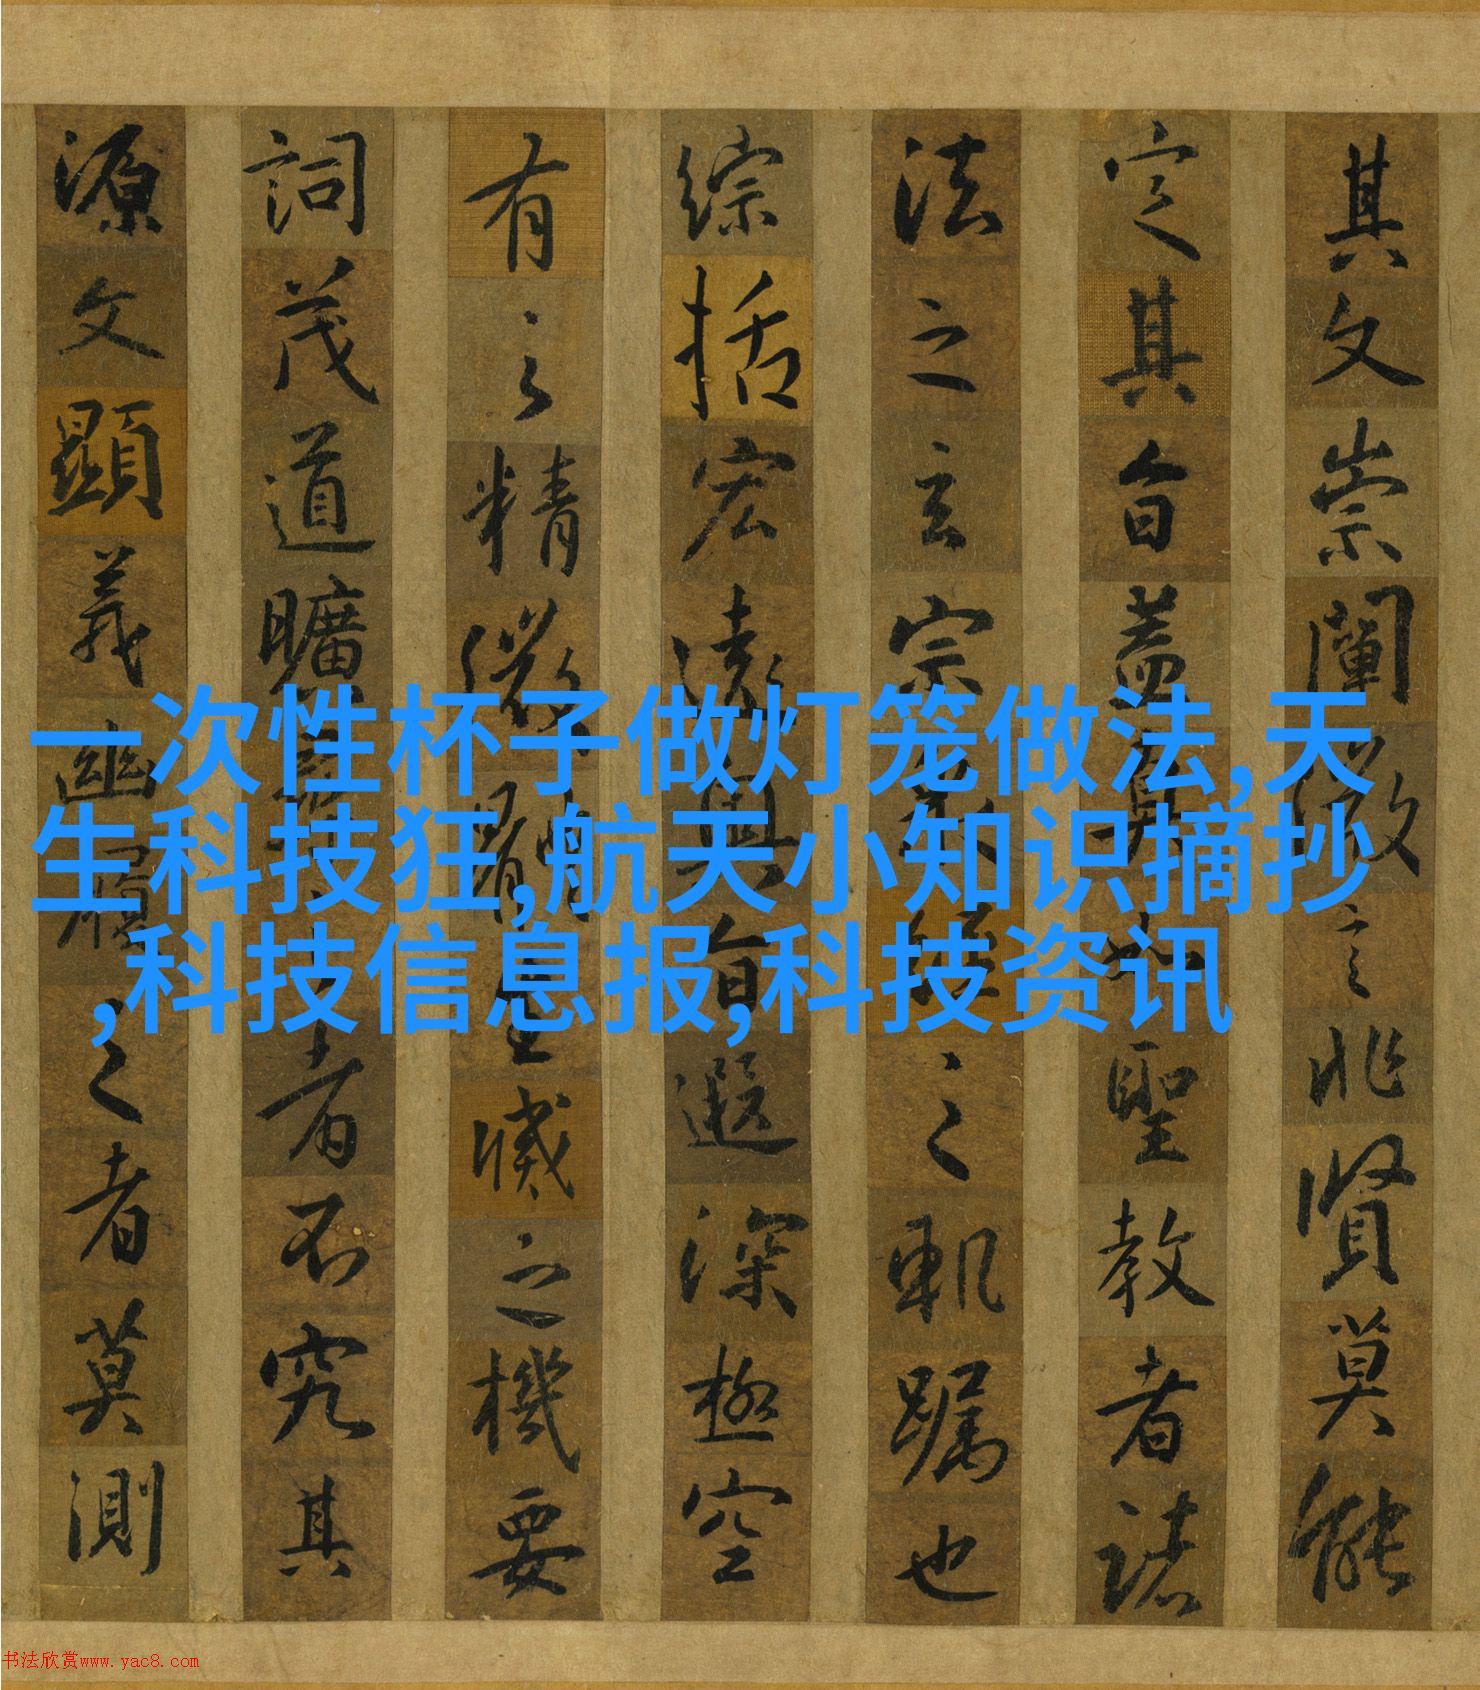 其文崇闡微言非賢莫能
定其旨蓋真如聖教者諸
法之玄宗衆經之軌躅也
綜括宏遠奧旨遐深極空
有之精微體生滅之機要
詞茂道曠尋之者不究其
源文顯義幽履之者莫測
一次性杯子做灯笼做法,天
生科技狂,航天小知识摘抄
,科技信息报,科技资讯
书法欣赏www.yac8.com